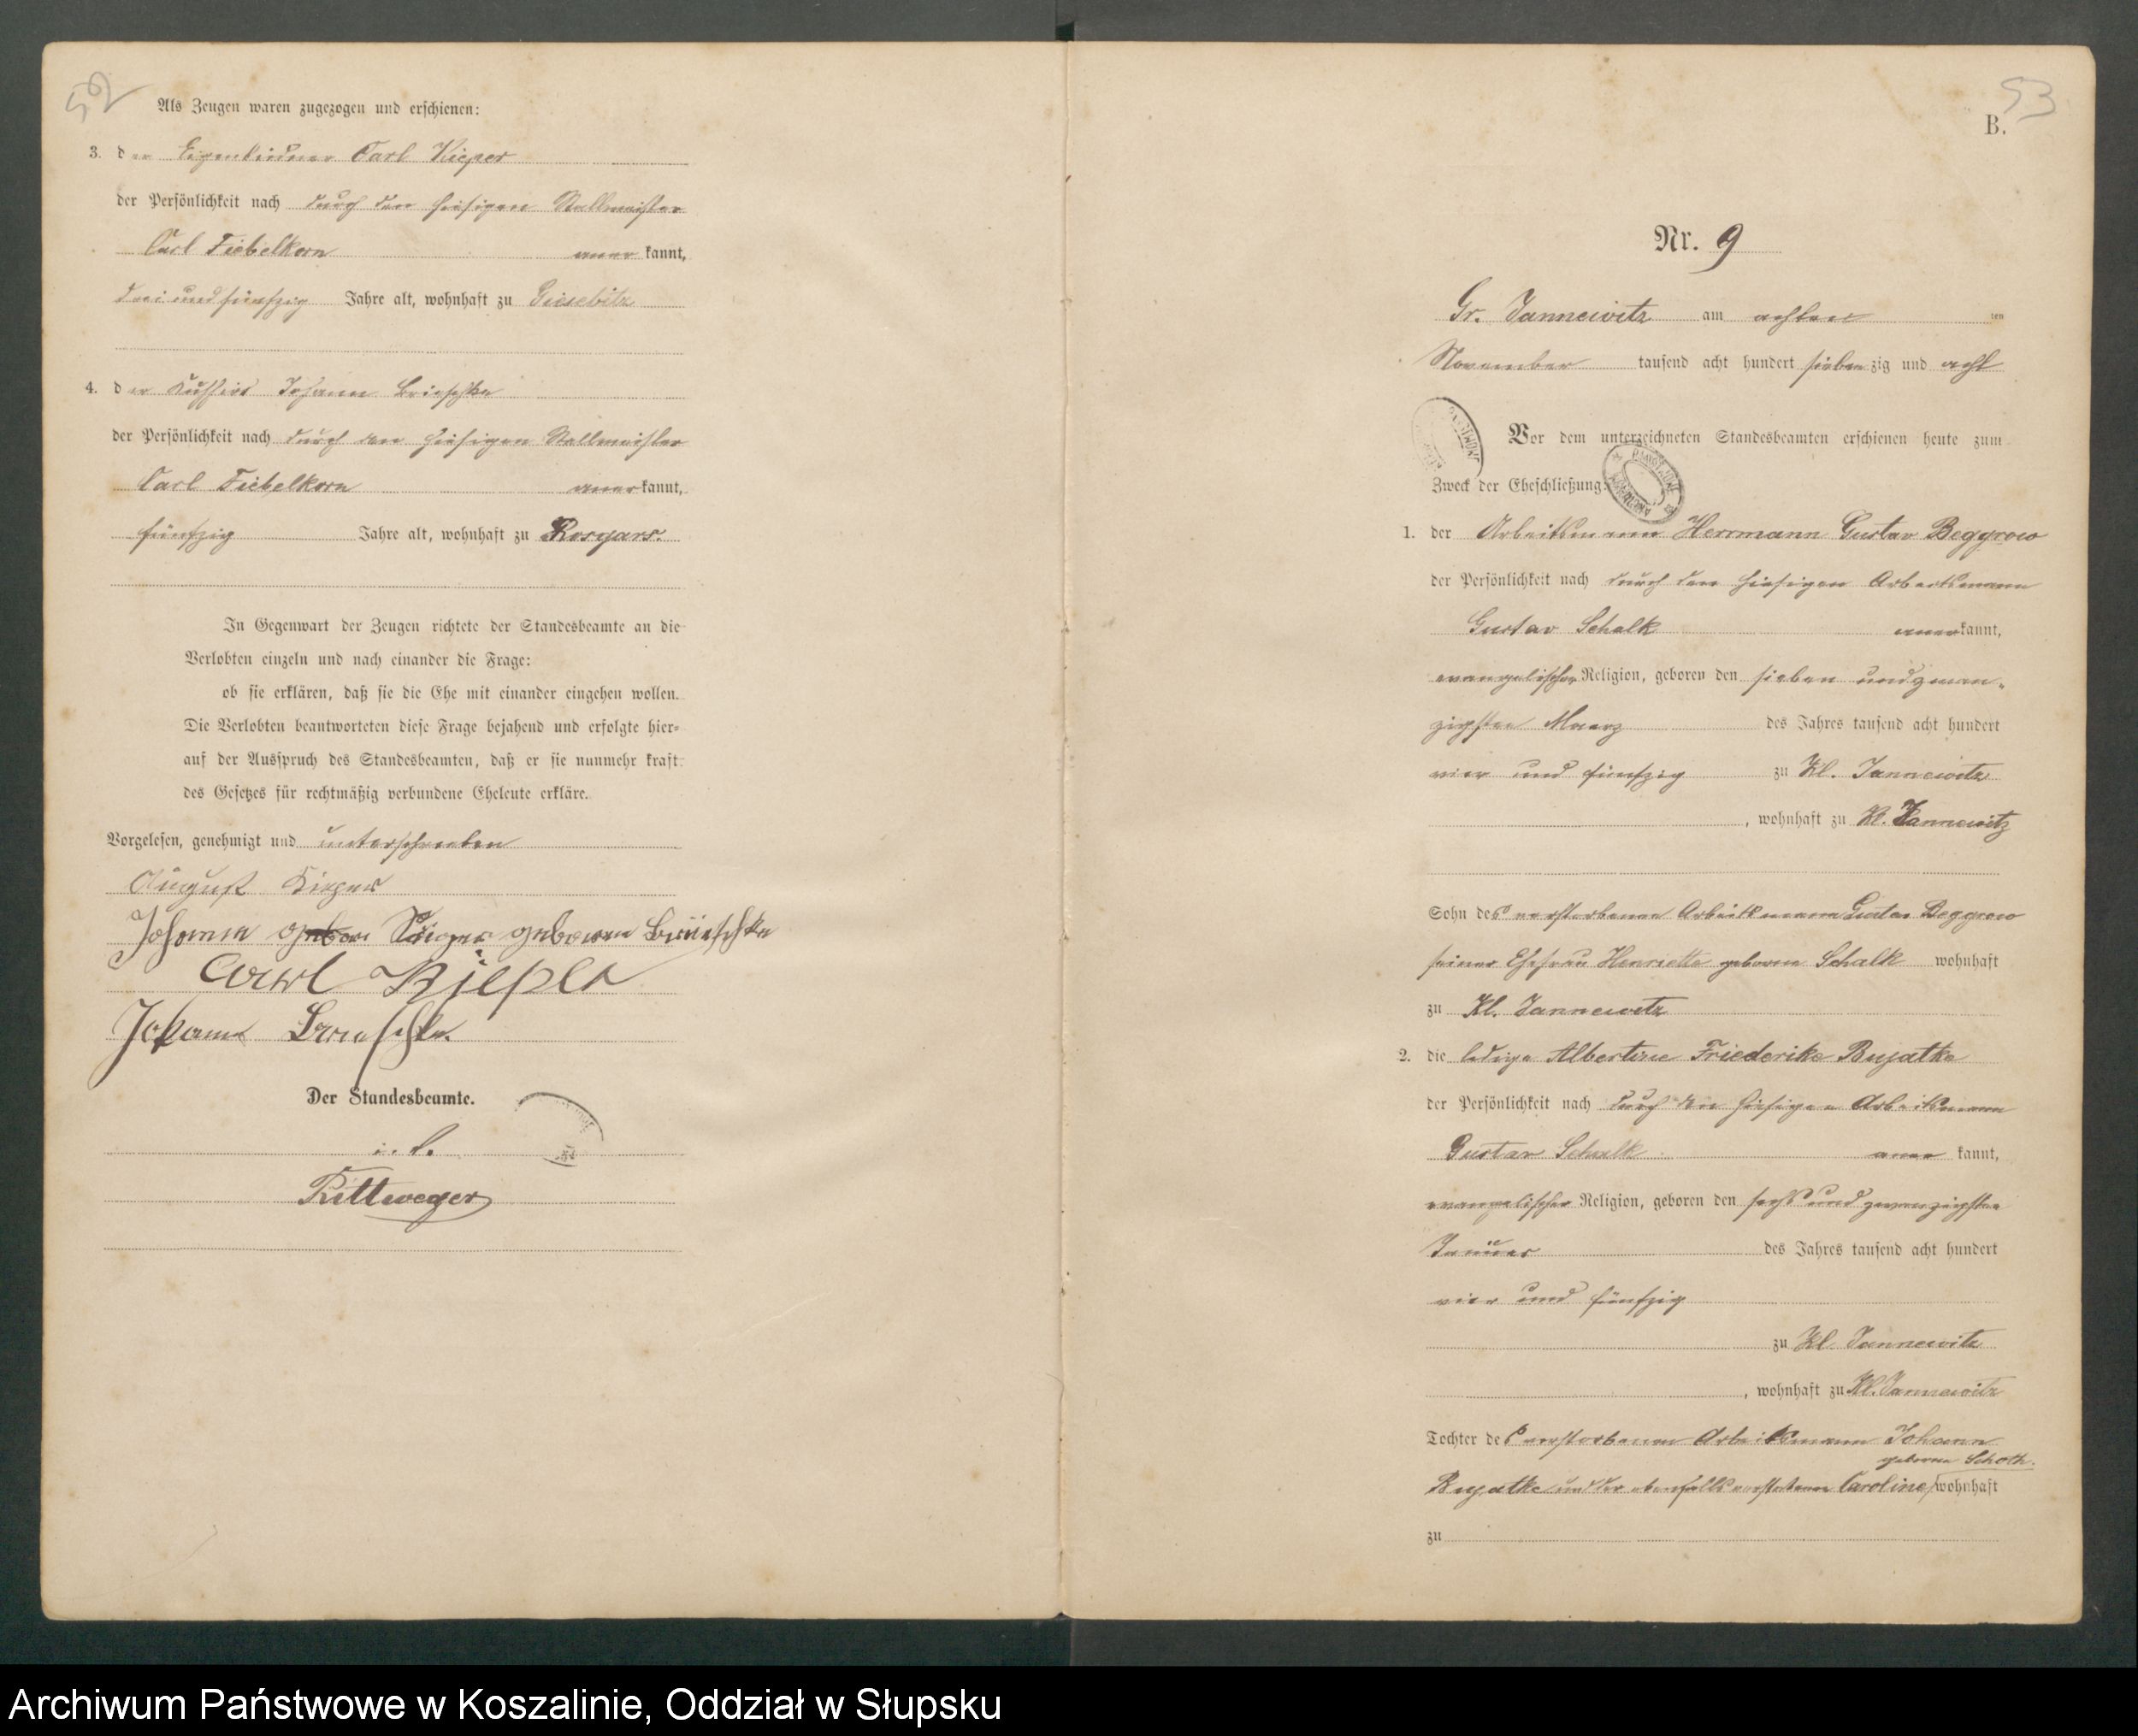 52
Als Zeugen waren zugezogen und erschienen:
3. der Eigenkätner Carl Kieper
der Persönlichkeit nach durch den hiesigen Stallmeister
Carl Fiebelkorn anerkannt,
drei und fünfzig Jahre alt, wohnhaft zu Giesebitz
4. der Johann Brieschke
der Persönlichkeit nach durch den hiesigen Stallmeister
Carl Fiebelkorn anerkannt,
fünfzig Jahre alt, wohnhaft zu Rosgars.
In Gegenwart der Zeugen richtete der Standesbeamte an die
Verlobten einzeln und nach einander die Frage:
ob sie erklären, daß sie die Ehe mit einander eingehen wollen.
Die Verlobten beantworteten diese Frage bejahend und erfolgte hier-
auf der Ausspruch des Standesbeamten, daß er sie nunmehr kraft
des Gesetzes für rechtmäßig verbundene Eheleute erkläre.
Vorgelesen, genehmigt und unterschrieben
August Kieper
Johanne Kieper geboren Brieschke
Carl Kieper
Johann Brieschke
Der Standesbeamte.
i. V.
Rittweger
53
B.
Nr. 9
Gr. Jannewitz am achten ten
November tausend acht hundert siebenzig und acht
Vor dem unterzeichneten Standesbeamten erschienen heute zum
Zweck der Eheschließung:
1. der Arbeitsmann Herrmann Gustav Beggrow
der Persönlichkeit nach durch den hiesigen Arbeitsmann
Gustav Schalk anerkannt,
evangelischer Religion, geboren den sieben und zwan-
zigsten Maerz des Jahres tausend acht hundert
vier und fünfzig zu Kl. Jannewitz
, wohnhaft zu Kl. Jannewitz
Sohn des verstorbenen Arbeitsmann Gustav Beggrow
seiner Ehefrau Henriette geborne Schalk wohnhaft
zu Kl. Jannewitz
2. die ledige Albertine Friederike Bujatke
der Persönlichkeit nach durch den hiesigen Arbeitsmann
Gustav Schalk anerkannt,
evangelischer Religion, geboren den sechs und zwanzigsten
Januar des Jahres tausend acht hundert
vier und fünfzig
zu Kl. Jannewitz
, wohnhaft zu Kl. Jannewitz
Tochter des verstorbenen Arbeitsmann Johann
geborne Schoth.
Bujatke und der ebenfalls verstorbenen Caroline wohnhaft
zu
Archiwum Państwowe w Koszalinie, Oddział w Słupsku